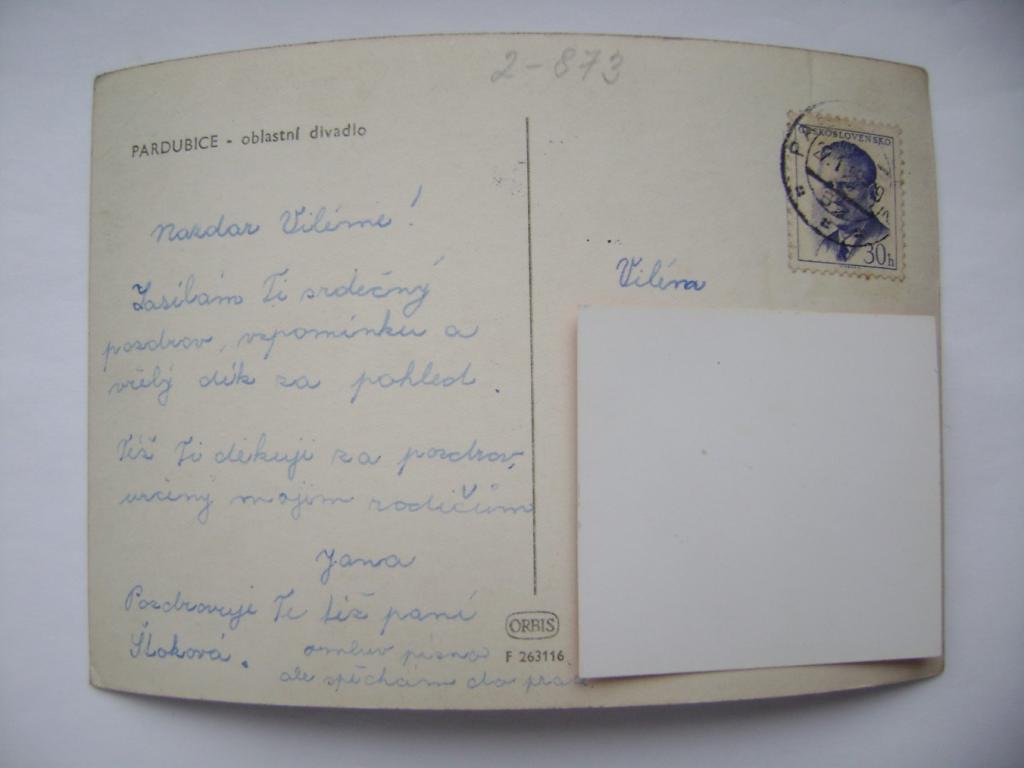 2-873
PARDUBICE - oblastní divadlo
ČESKOSLOVENSKO
30h
Nazdar Viléme!
Zasílám Ti srdečný
pozdrav, vzpomínku a
vřelý dík za pohled
Též Ti děkuji za pozdrav,
určený mojim rodičům
Jana
Pozdravuje Te též paní
Šloková.
omluv písmo
ale spěchám do
Viléma
ORBIS
F 263116